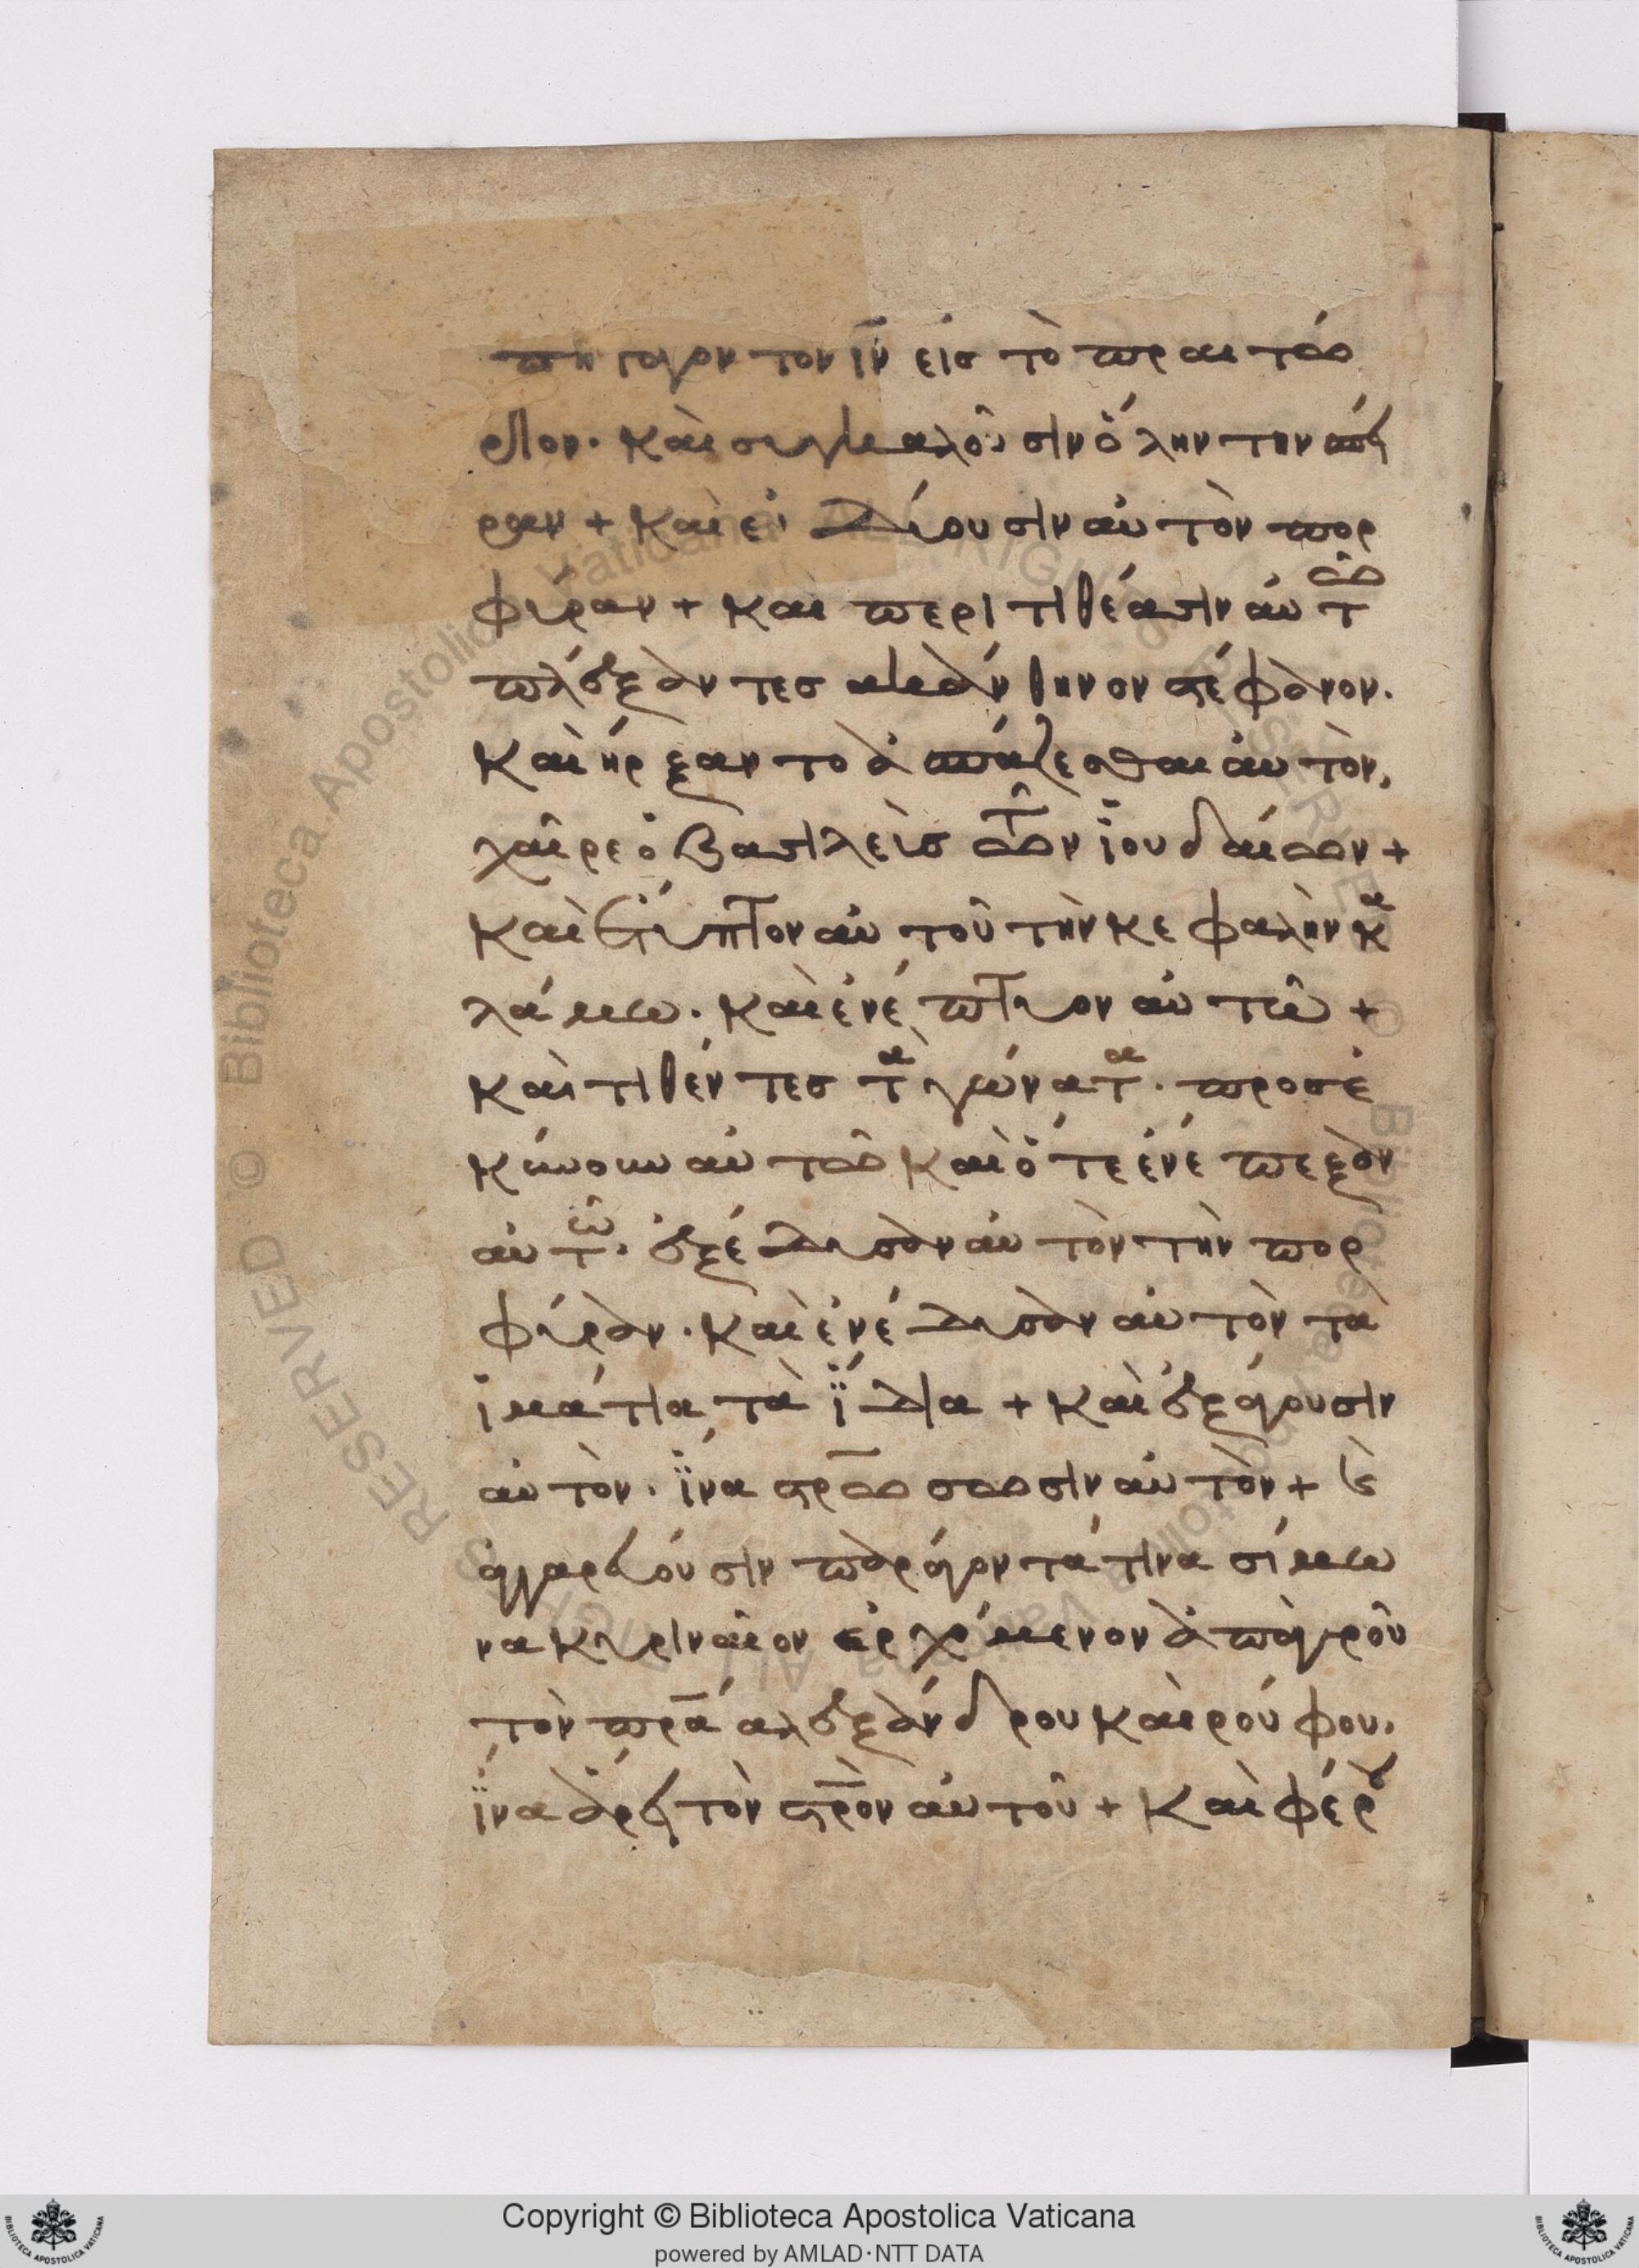 πήγαγον τὸν ἰν̅ εἰς τὸ πραιτώ
ριον. καὶ συγκαλοῦσιν ὅλην τὴν σπεῖ
ραν + καὶ ἐνδύουσιν αὐτὸν πορ
φύραν + καὶ περιτιθέασιν αὐτῶ
πλέξαντες ἀκάνθηνον στέφανον.
καὶ ἤρξαντο ἀσπάζεσθαι αὐτὸν,
χαῖρε ὁ βασιλεὺς τῶν ἰουδαίων +
καὶ ἔτυπτον αὐτοῦ τὴν κεφαλὴν κα
λάμω. καὶ ἐνέπτυον αὐτῶ +
καὶ τιθέντες τὰ γώνατα. προσε
κύνουν αὐτῶ καὶ ὅτε ἐνέπεξαν
αὐτῶ. ἐξέδυσαν αὐτὸν τὴν πορ
φύραν. καὶ ἐνέδυσαν αὐτὸν τὰ
ἱμάτια τὰ ἴδια + καὶ ἐξάγουσιν
αὐτὸν. ἵνα στρ̅ωσωσιν αὐτὸν + καὶ
ἀγγαρεύουσιν παράγοντά τινα σίμω
να κυριναῖον ἐρχόμενον ἀπ' ἀγροῦ
τὸν πρ̅α ἀλεξάνδρου καὶ ρούφου.
ἵνα ἄρη τὸν στρ̅ον αὐτοῦ + καὶ φέρου
Copyright © Biblioteca Apostolica Vaticana
powered by AMLAD·NTT DATA